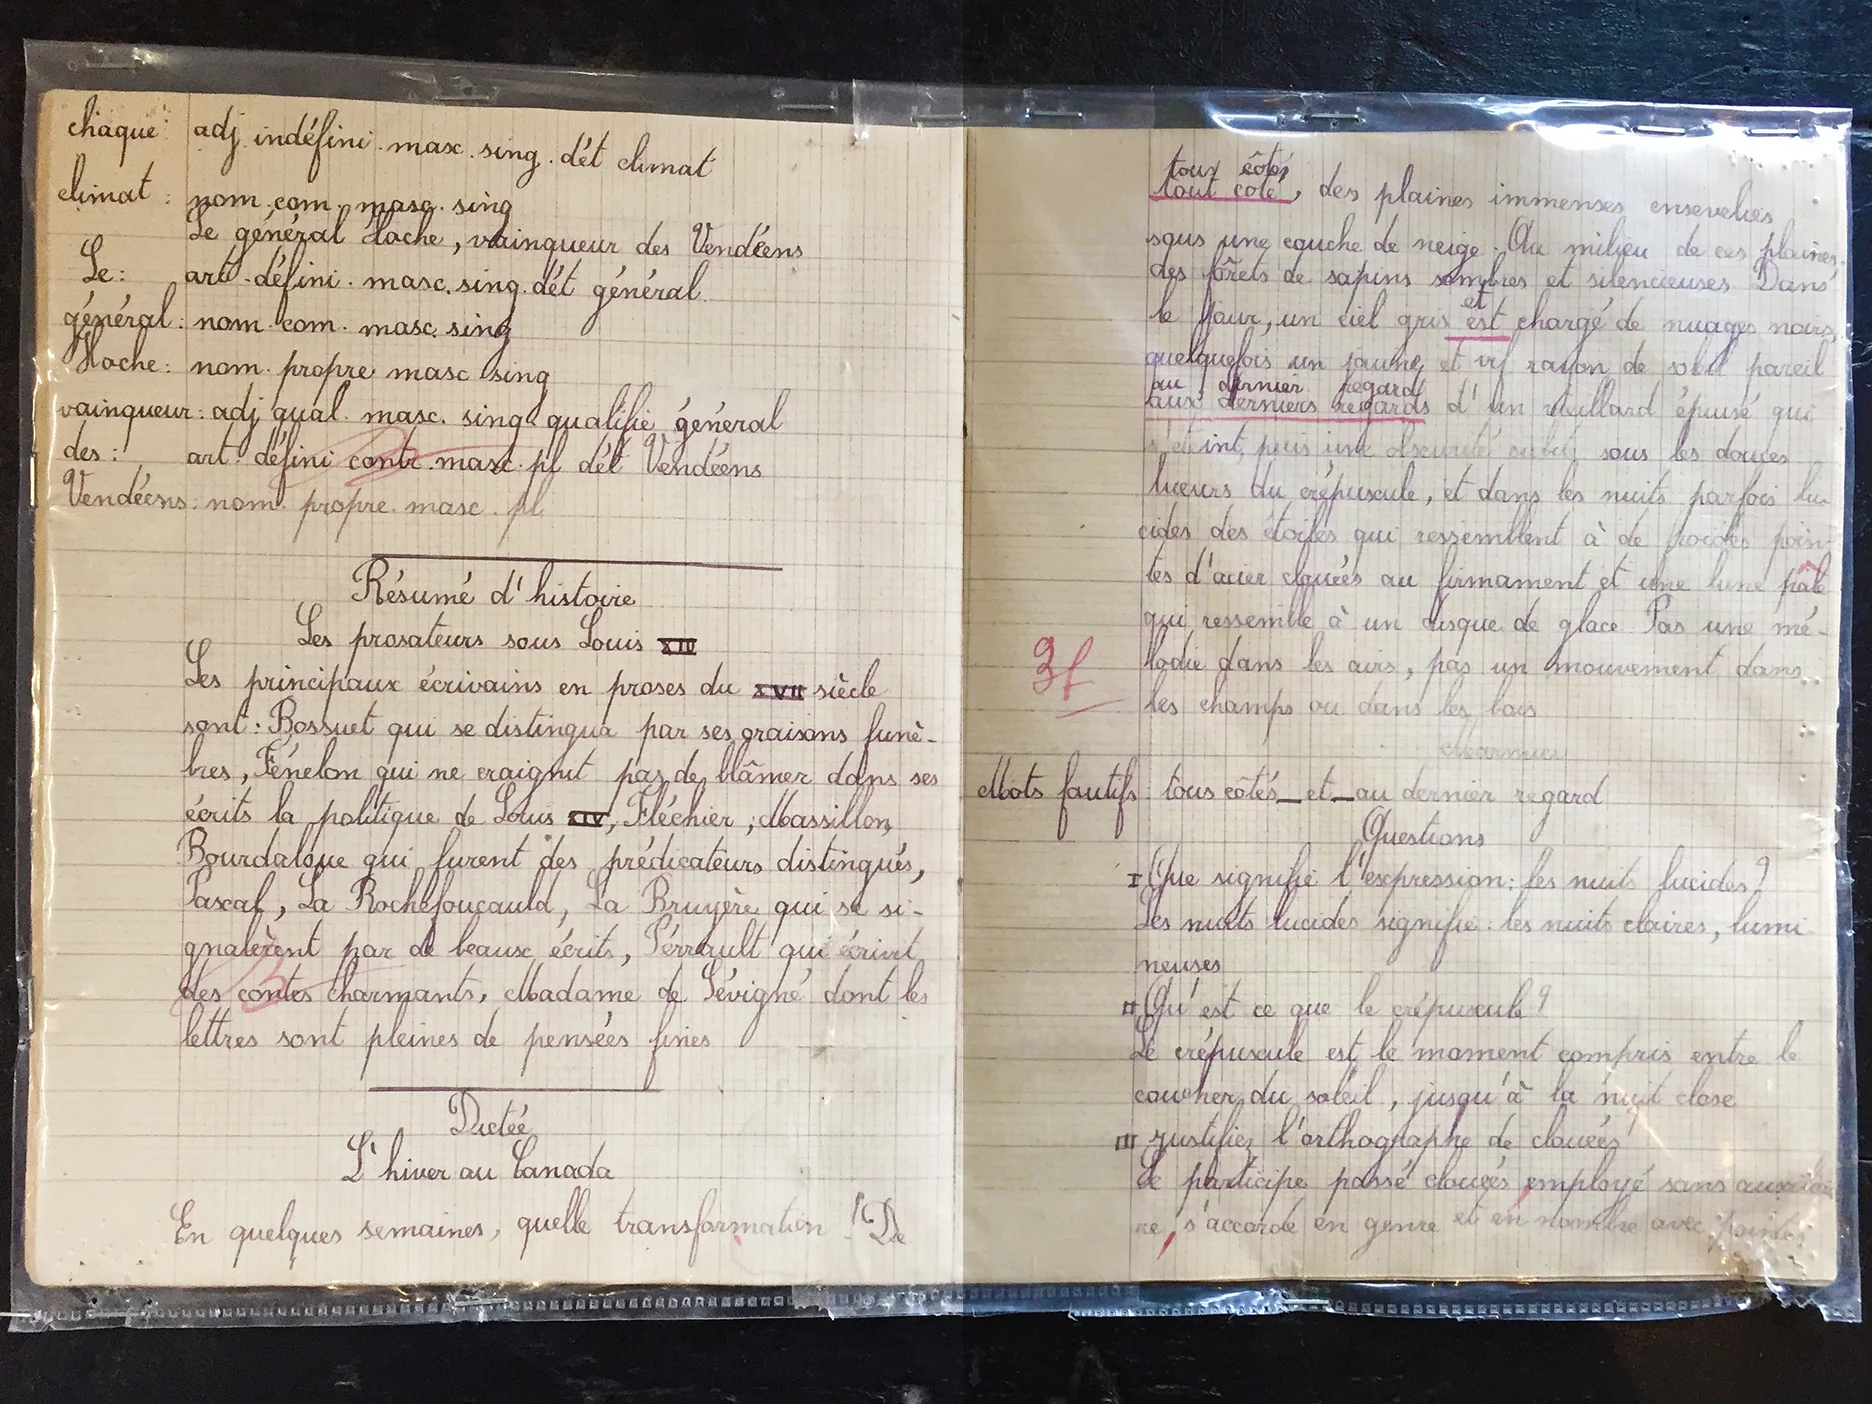 chaque : adj indéfini . masc . sing . dét climat
climat : nom . com . masc . sing
Le général Hoche, vainqueur des Vendéens
Le : art . défini . masc . sing . dét général
général : nom . com . masc . sing
Hoche : nom . propre masc sing
vainqueur : adj qual . masc . sing qualifie général
des : art . défini contr . masc . pl dét Vendéens
Vendéens : nom . propre . masc . pl
Résumé d'histoire
Les prosateurs sous Louis XIV
Les principaux écrivains en proses du XVII siècle
sont : Bossuet qui se distingua par ses oraisons funè-
bres, Fénelon qui ne craignit pas de blâmer dans ses
écrits la politique de Louis XIV, Fléchier, Massillon,
Bourdaloue qui furent des prédicateurs distingués,
Pascal, La Rochefoucauld, La Bruyère qui se si-
gnalèrent par de beaux écrits, Pérrault qui écrivit
des contes charmants, Madame de Sévigné dont les
lettres sont pleines de pensées fines
Dictée
L'hiver au Canada
En quelques semaines, quelle transformation ! De
tous côtés
tout coté, des plaines immenses ensevelies
sous une couche de neige . Au milieu de ces plaines,
des fôrets de sapins sombres et silencieuses Dans
et
le jour, un ciel gris est chargé de nuages noirs,
quelquefois un jaune et vif rayon de soleil pareil
au dernier regard
aux derniers regards d'un vieillard épuisé qui
s'éteint, puis une obscurité subit, sous les douces
lueurs du crépuscule, et dans les nuits parfois lu-
cides des étoiles qui ressemblent à de froides poin-
tes d'acier clouées au firmament et une lune pâle
qui ressemble à un disque de glace Pas une mé-
lodie dans les airs, pas un mouvement dans
3f
les champs ou dans les bois
Marmier
Mots fautifs : tous côtés _ et _ au dernier regard
Questions
I Que signifie l'expression : les nuits lucides ?
Les nuits lucides signifie : les nuits claires, lumi
neuses
II Qu'est ce que le crépuscule ?
Le crépuscule est le moment compris entre le
coucher du soleil, jusqu'à la nuit close
III justifiez l'orthographe de clouées
Le participe passé clouées employé sans auxiliai
re, s'accorde en genre et en nombre avec pointes